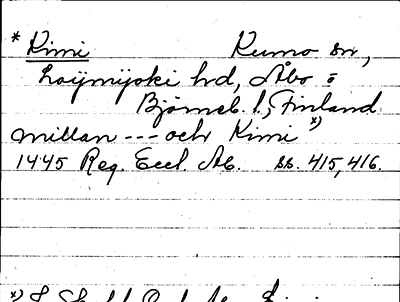 * Kimi Kumo sn,
Loijmijoki hd, Åbo =
Björneb. l., Finland
millan --- och Kimi x)
1445 Reg. Eccl. Ab. ss. 415, 416.